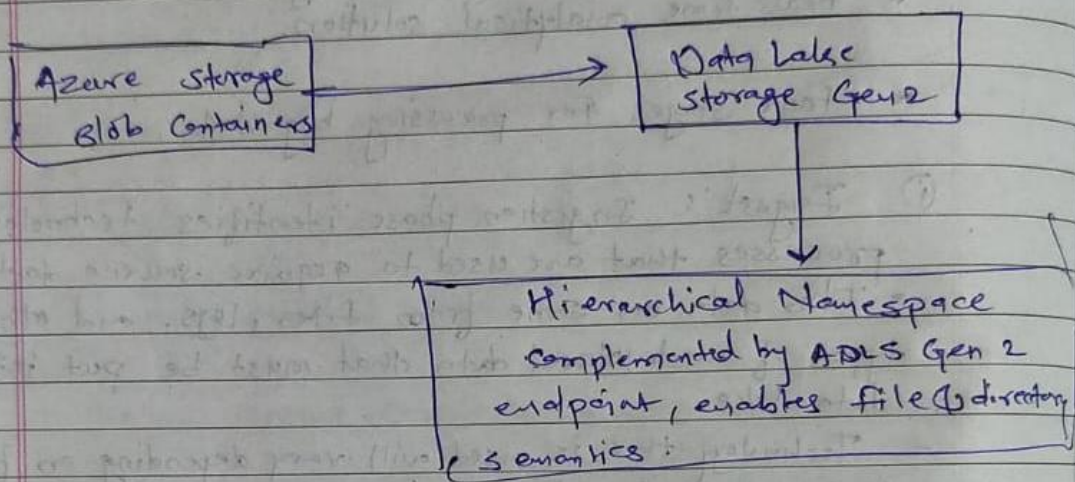 Azure Storage
Blob Containers
Data Lake
Storage Gen2
Hierarchical Namespace
complemented by ADLS Gen 2
endpoint, enables file & directory
semantics.